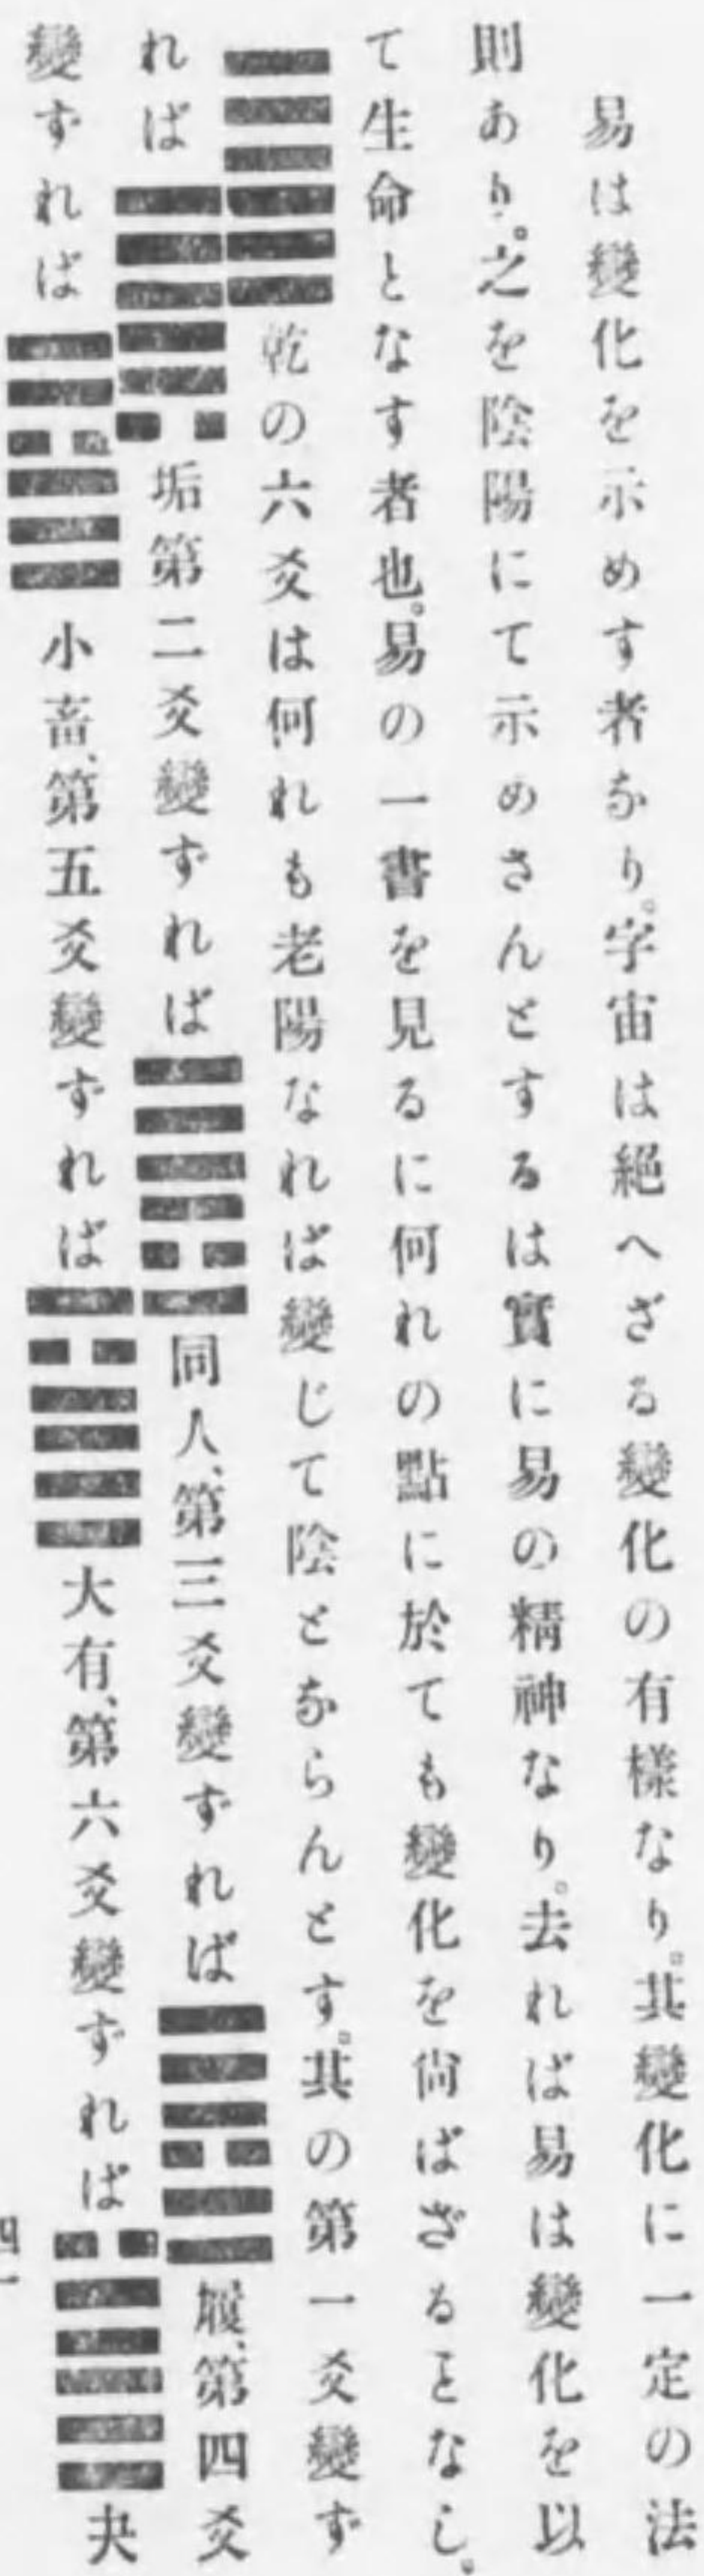 易は變化を示めす者なり。宇宙は絕へざる變化の有樣なり。其變化に一定の法
則あり。之を陰陽にて示めさんとするは實に易の精神なり。去れば易は變化を以
て生命となす者也。易の一書を見るに何れの點に於ても變化を尙ばざることなし。
䷀乾の六爻は何れも老陽なれば變じて陰とならんとす。其の第一爻變ず
れば䷫垢第二爻變ずれば䷌同人、第三爻變ずれば䷉履、第四爻
變ずれば䷈小畜、第五爻變ずれば䷍大有、第六爻變ずれば䷪夬
四一